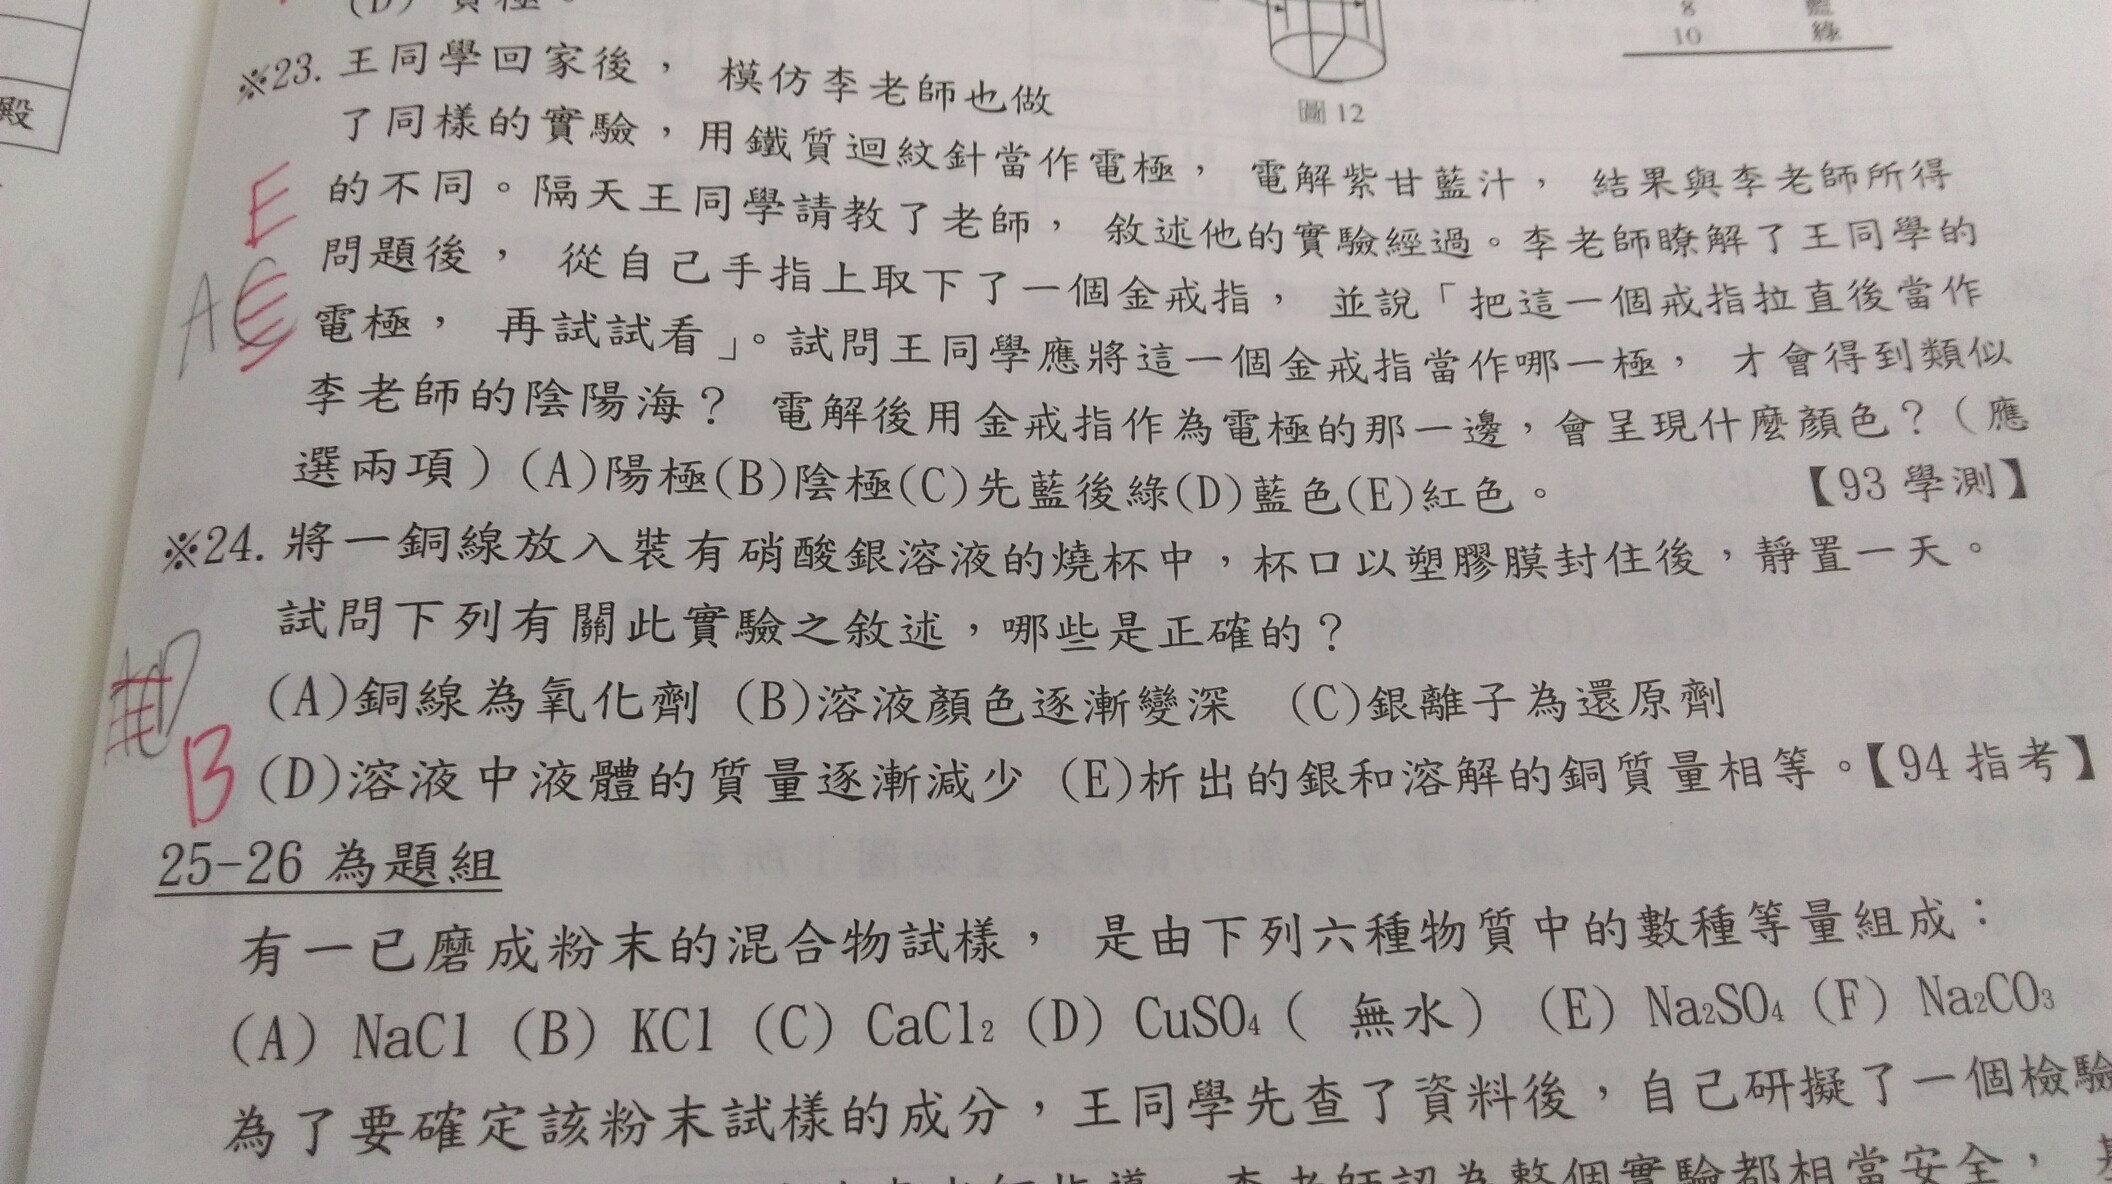 (D) 負極。
8 藍
10 綠
圖 12
殿
※23. 王同學回家後， 模仿李老師也做
了同樣的實驗，用鐵質迴紋針當作電極， 電解紫甘藍汁， 結果與李老師所得
的不同。隔天王同學請教了老師， 敘述他的實驗經過。李老師瞭解了王同學的
問題後， 從自己手指上取下了一個金戒指， 並說「把這一個戒指拉直後當作
電極， 再試試看」。試問王同學應將這一個金戒指當作哪一極， 才會得到類似
李老師的陰陽海？ 電解後用金戒指作為電極的那一邊，會呈現什麼顏色？（應
選兩項）(A)陽極(B)陰極(C)先藍後綠(D)藍色(E)紅色。 【93 學測】
E
A
※24. 將一銅線放入裝有硝酸銀溶液的燒杯中，杯口以塑膠膜封住後，靜置一天。
試問下列有關此實驗之敘述，哪些是正確的？
(A)銅線為氧化劑 (B)溶液顏色逐漸變深 (C)銀離子為還原劑
(D)溶液中液體的質量逐漸減少 (E)析出的銀和溶解的銅質量相等。【94 指考】
B
25-26 為題組
有一已磨成粉末的混合物試樣， 是由下列六種物質中的數種等量組成：
(A) NaCl (B) KCl (C) CaCl₂ (D) CuSO₄ ( 無水) (E) Na₂SO₄ (F) Na₂CO₃
為了要確定該粉末試樣的成分，王同學先查了資料後，自己研擬了一個檢驗
李老師認為整個實驗都相當安全，